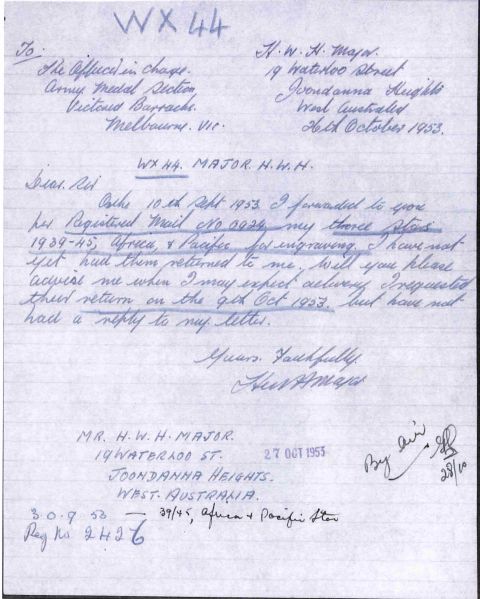 WX 44
To:
The Officer in Charge.
Army Medal Section,
Victoria Barracks.
Melbourne. Vic.
H. W. H. Major.
19 Waterloo Street
Joondanna Heights
West Australia
26th October 1953.
WX 44. MAJOR. H.W.H.
Dear Sir
On the 10th Sept 1953 I forwarded to you
per Registered Mail No 0924 my three Stars
1939-45, Africa, & Pacific for engraving. I have not
yet had them returned to me. Will you please
advise me when I may expect delivery. I requested
their return on the 9th Oct 1953, but have not
had a reply to my letter.
Yours Faithfully.
HWH Major
MR. H. W. H. MAJOR.
19 WATERLOO ST.
JOONDANNA HEIGHTS.
WEST. AUSTRALIA.
27 OCT 1953
By air
28/10
30.9.53 — 39/45, Africa & Pacific Star
Reg No 2426